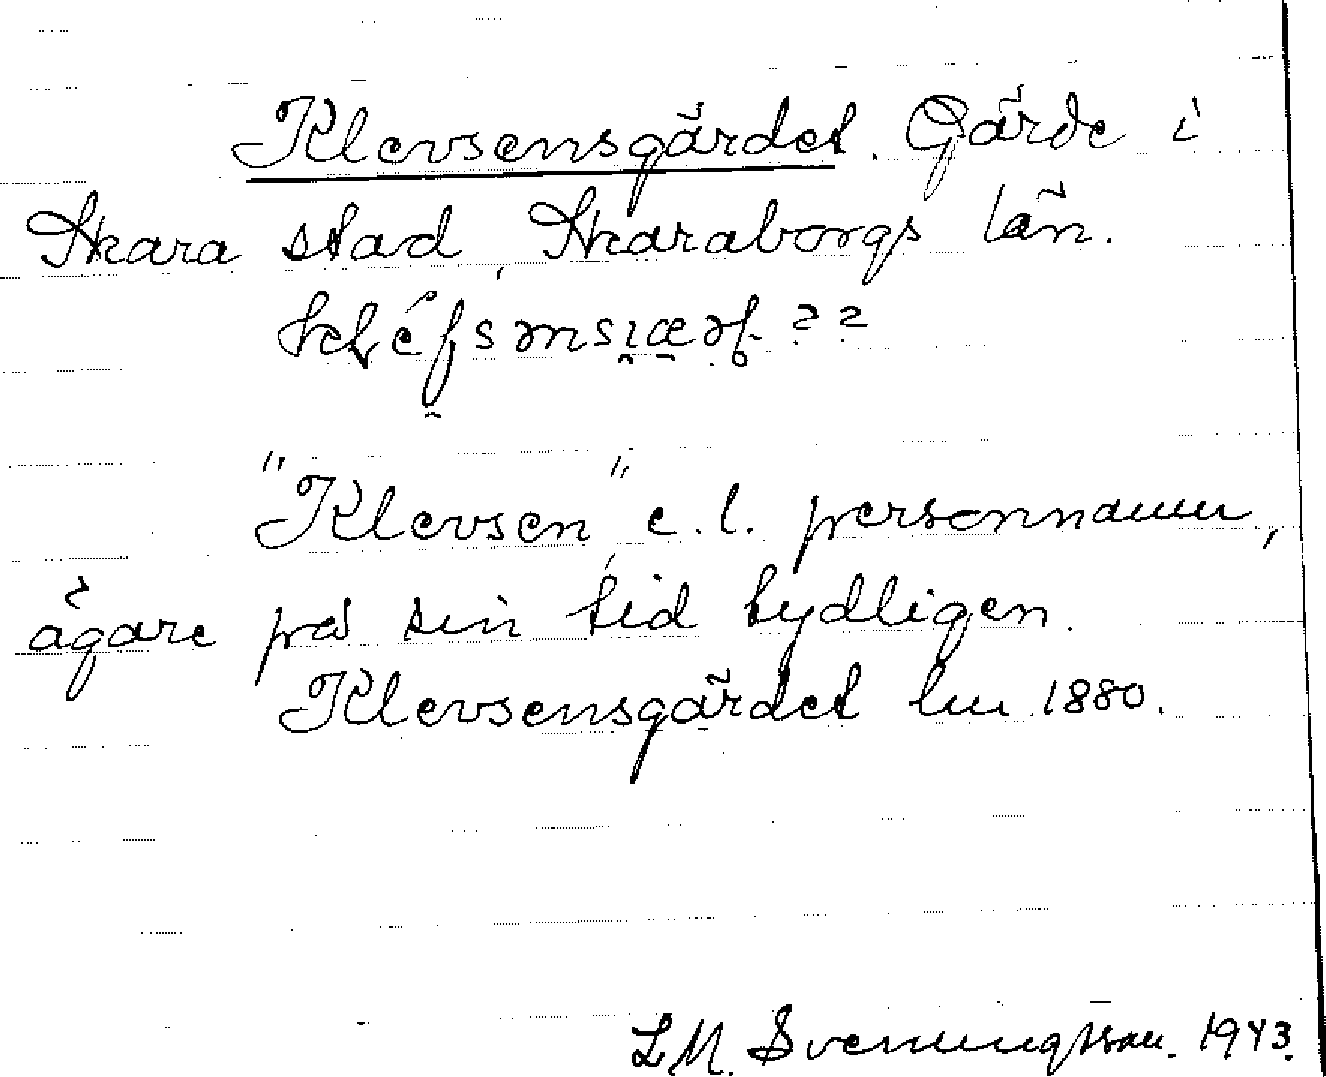 Klevsensgärdet. Gärde i
Skara stad, Skaraborgs län.
"Klevsen", e.l. personnamn,
ägare på sin tid tydligen.
Klevsensgärdet lm 1880.
L M. Svenungsson. 1943.